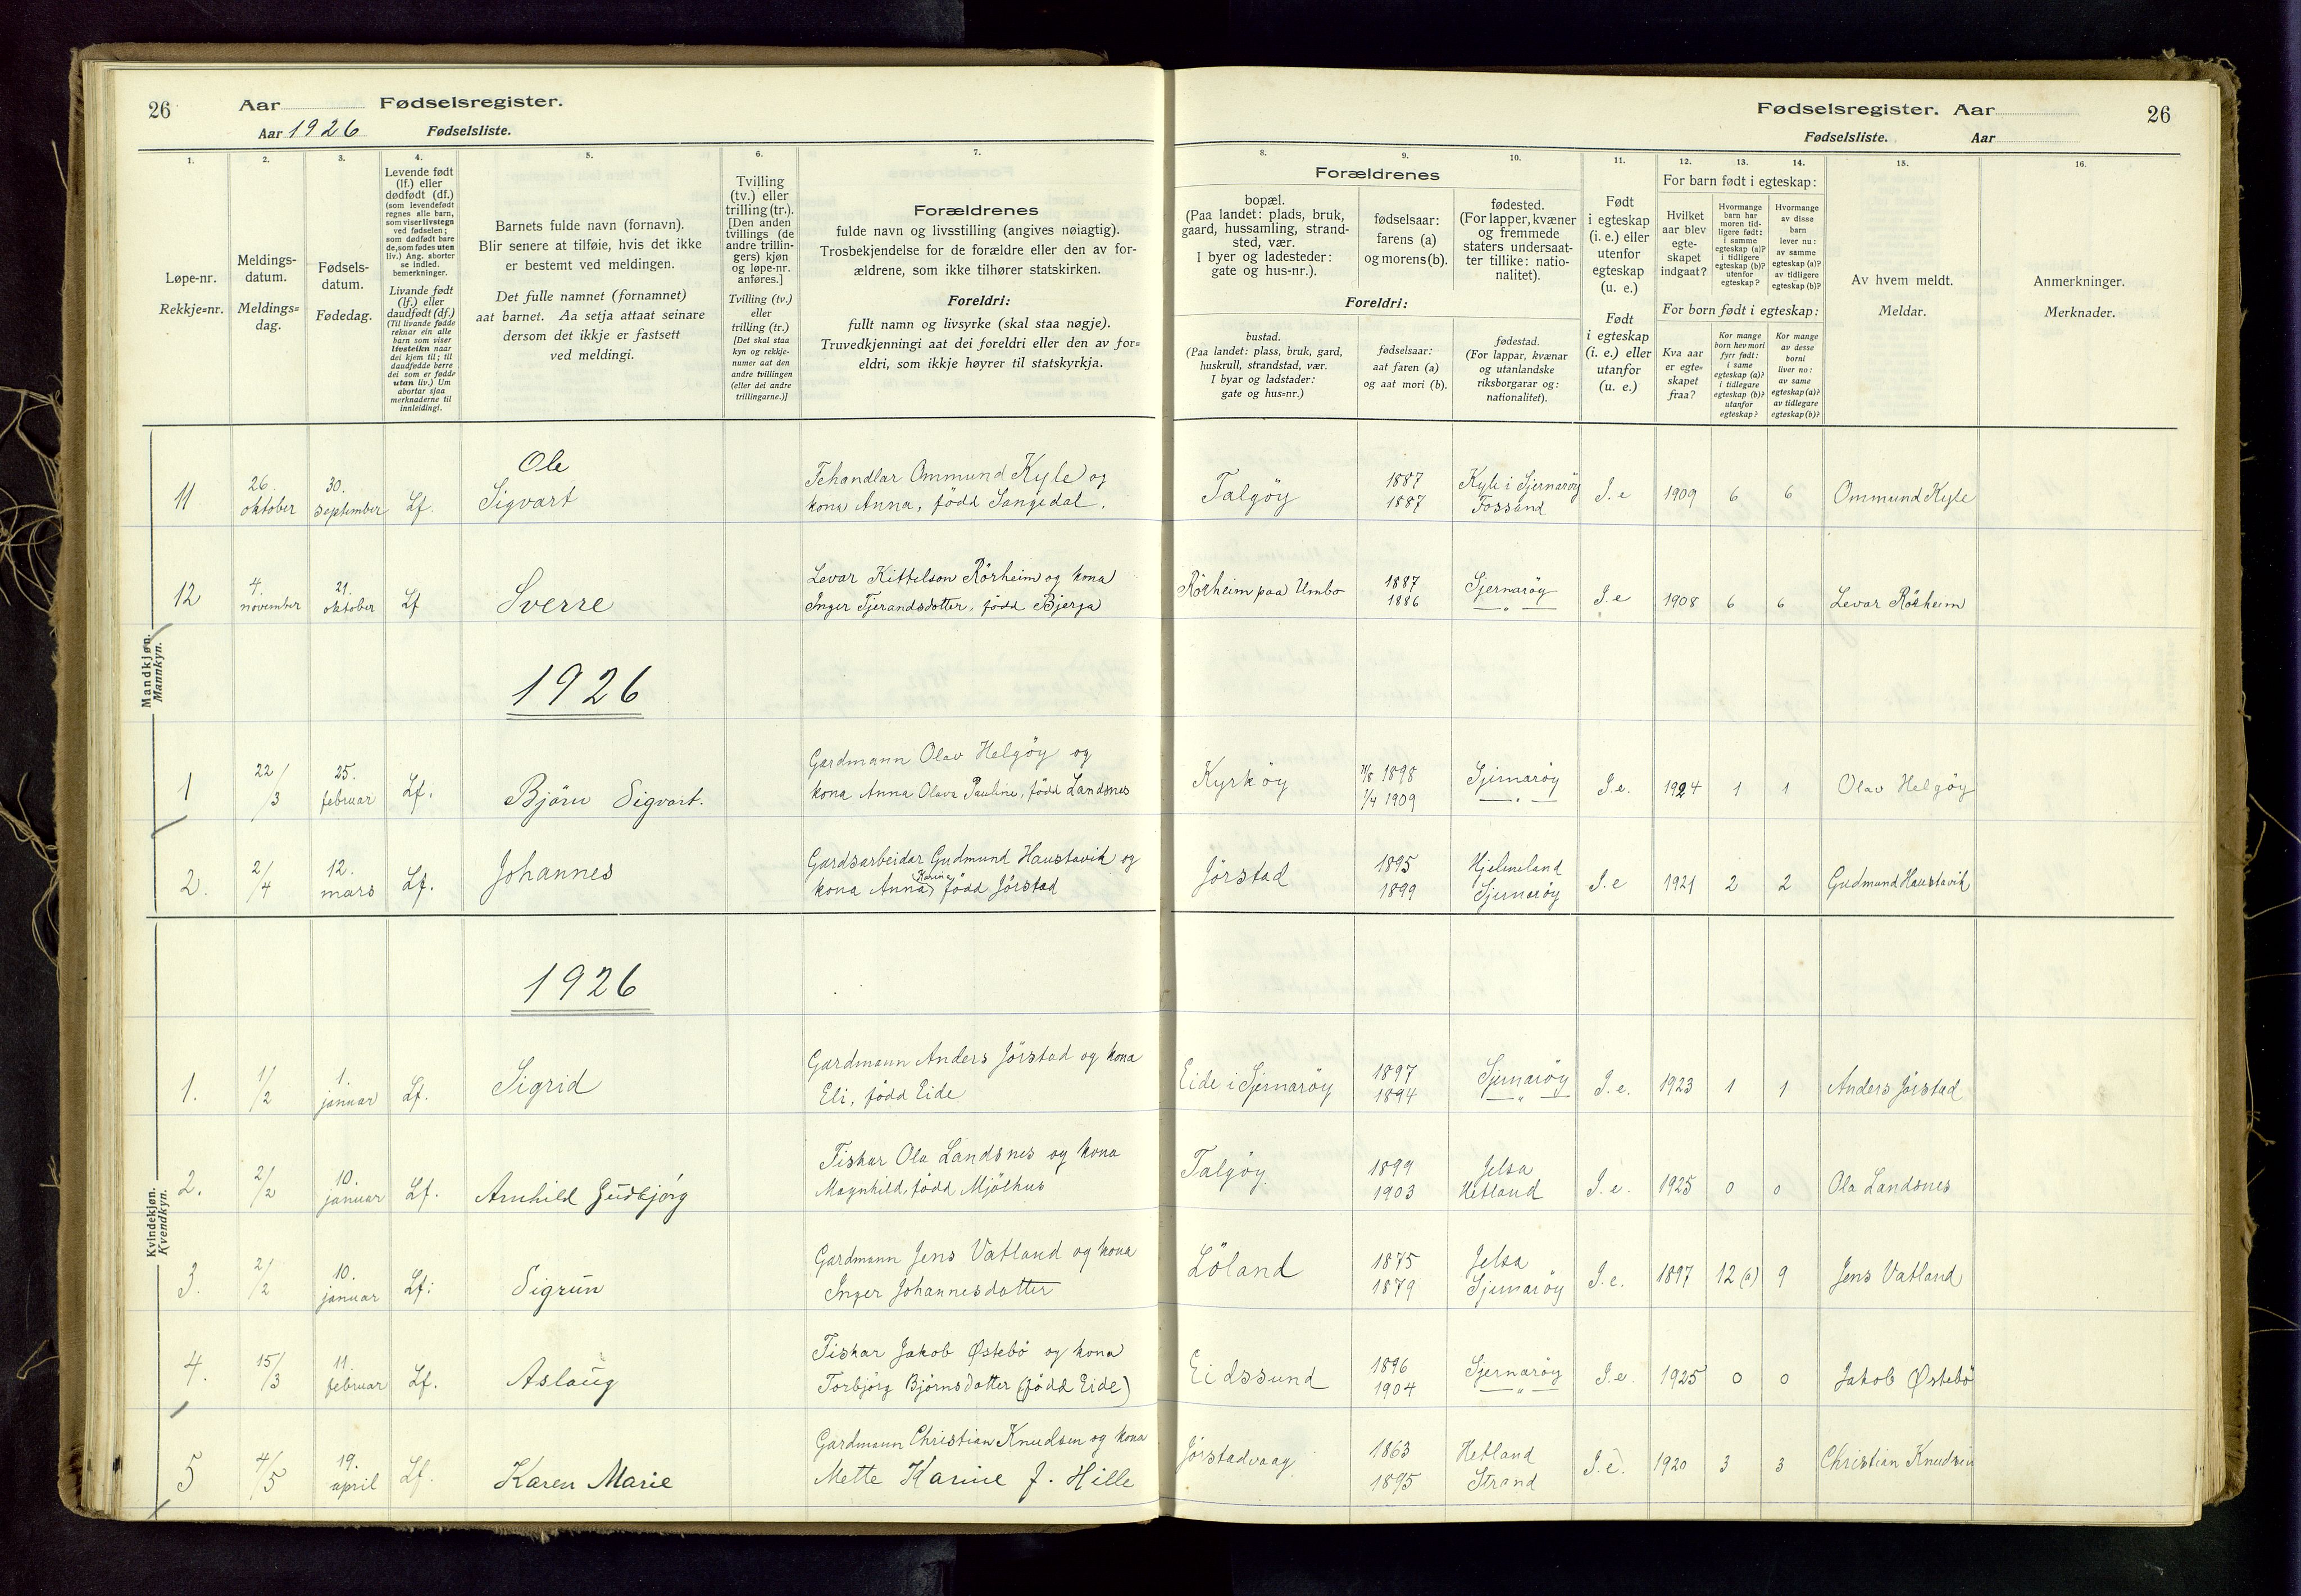 26 Aar Fødselsregister.
Aar 1926 Fødselsliste.
Fødselsregister. Aar 26
Fødselsliste. Aar
1.
Løpe-nr.
Rekkje=nr.
2.
Meldings-
datum.
Meldings=
dag.
3.
Fødsels-
datum.
Fødedag.
4.
Levende født
(lf.) eller
dødfødt (df.)
(som levendefødt
regnes alle barn,
som viser livstegn
ved fødselen;
som dødfødt bare
de, som fødes uten
liv.) Ang. aborter
se indled.
bemerkninger.
Livande født
(lf.) eller
daudfødt (df.)
(Til livande fødde
reknar ein alle
barn som viser
livsteikn naar
dei kjem til; til
daudfødde berre
dei som er fødde
utan liv.) Um
abortar sjaa
merknaderne til
innleidingi.
5.
Barnets fulde navn (fornavn).
Blir senere at tilføie, hvis det ikke
er bestemt ved meldingen.
Det fulle namnet (fornamnet)
aat barnet. Aa setja attaat seinare
dersom det ikkje er fastsett
ved meldingi.
6.
Tvilling
(tv.) eller
trilling (tr.).
[Den anden
tvillings (de
andre trillin-
gers) kjøn
og løpe-nr.
anføres.]
Tvilling (tv.)
eller
trilling (tr.)
[Det skal staa
kyn og rekkje-
numer aat den
andre tvillingen
(eller dei andre
trillingarne.)]
7.
Forældrenes
fulde navn og livsstilling (angives nøiagtig).
Trosbekjendelse for de forældre eller den av for-
ældrene, som ikke tilhører statskirken.
Foreldri:
fullt namn og livsyrke (skal staa nøgje).
Truvedkjenningi aat dei foreldri eller den av for=
eldri, som ikkje høyrer til statskyrkja.
8.
Forældrenes
bopæl.
(Paa landet: plads, bruk,
gaard, hussamling, strand-
sted, vær.
I byer og ladesteder:
gate og hus-nr.).
Foreldri:
bustad.
(Paa landet: plass, bruk, gard,
huskrull, strandstad, vær.
I byar og ladstader:
gate og hus=nr.)
9.
fødselsaar:
farens (a)
og morens (b).
fødselsaar:
aat faren (a)
og aat mori (b).
10.
fødested.
(For lapper, kvæner
og fremmede
staters undersaat-
ter tillike: natio-
nalitet).
fødestad.
(For lappar, kvænar
og utanlandske
riksborgarar og:
nationalitet).
11.
Født
i egteskap
(i. e.) eller
utenfor
egteskap
(u. e.)
Født
i egteskap
(i. e.) eller
utanfor
(u. e.)
12.
For barn født i egteskap:
Hvilket
aar blev
egte-
skapet
indgaat?
For born født i egteskap:
Kva aar
er egte=
skapet
fraa?
13.
Hvormange
barn har
moren tid-
ligere født:
i samme
egteskap (a)?
i tidligere
egteskap (b)?
utenfor
egteskap?
Kor mange
born hev mori
fyrr født:
i same
egteskap (a)?
i tidlegare
egteskap (b)?
utanfor
egteskap?
14.
Hvormange
av disse
barn
lever nu:
av samme
egteskap (a)?
av tidligere
egteskap (b)?
Kor mange
av desse
borni
liver no:
av same
egteskap (a)?
av tidlegare
egteskap (b)?
15.
Av hvem meldt.
Meldar.
16.
Anmerkninger.
Merknader.
Mandkjøn.
Mannkyn.
11 26. oktober 30. september Lf. Ole
Sigvart
Fehandlar Ommund Kyle og
kona Anna, född Sangedal.
Talgöy 1887 Kyle i Sjernaröy I. e 1909 6 6 Ommund Kyle
1887 Fossand
12 4. november 21. oktober Lf Sverre
Levar Kittelson Rörheim og kona
Inger Tjerandsdotter, född Bjerga
Rörheim paa Umbo 1887 Sjernaröy I. e 1908 6 6 Levar Rörheim
1886 — " —
1926
1 22/3 25. februar Lf. Björn Sigvart.
Gardmann Olav Helgöy og
kona Anna Olava Pauline, född Landsnes
Kyrköy 11/8 1898 Sjernaröy I. e. 1924 1 1 Olav Helgöy
1/4 1909 — " —
2. 2/4 12. mars Lf. Johannes
Gardsarbeidar Gudmund Haustavik og
kona Anna Karine, född Jörstad
Jörstad 1895 Hjelmeland I. e 1921 2 2 Gudmund Haustavik
1899 Sjernaröy
1926
Kvindekjøn.
Kvendkyn.
1. 1/2 1. januar Lf. Sigrid
Gardmann Anders Jörstad og kona
Eli, född Eide
Eide i Sjernaröy 1897 Sjernaröy I. e. 1923 1 1 Anders Jörstad
1894 — " —
2. 2/2 10. januar Lf. Arnhild Gudbjörg
Fiskar Ola Landsnes og kona
Magnhild, född Mjölhus
Talgöy 1899 Jelsa I. e. 1925 0 0 Ola Landsnes
1903 Hetland
3. 2/2 10. januar Lf. Sigrun
Gardmann Jens Vatland og kona
Inger Johannesdotter
Löland 1875 Jelsa I. e. 1897 12 (a) 9 Jens Vatland
1879 Sjernaröy
4. 15/3 11. februar Lf. Aslaug
Fiskar Jakob Østebö og kona
Torbjörg Björnsdotter (född Eide)
Eidssund 1896 Sjernaröy I. e. 1925 0 0 Jakob Østebö
1904 — " —
5 4/5 19. april Lf. Karen Marie
Gardmann Christian Knudsen og kona
Mette Karine f. Hille
Jörstadvaag 1863 Hetland I. e. 1920 3 3 Christian Knudsen
1895 Strand